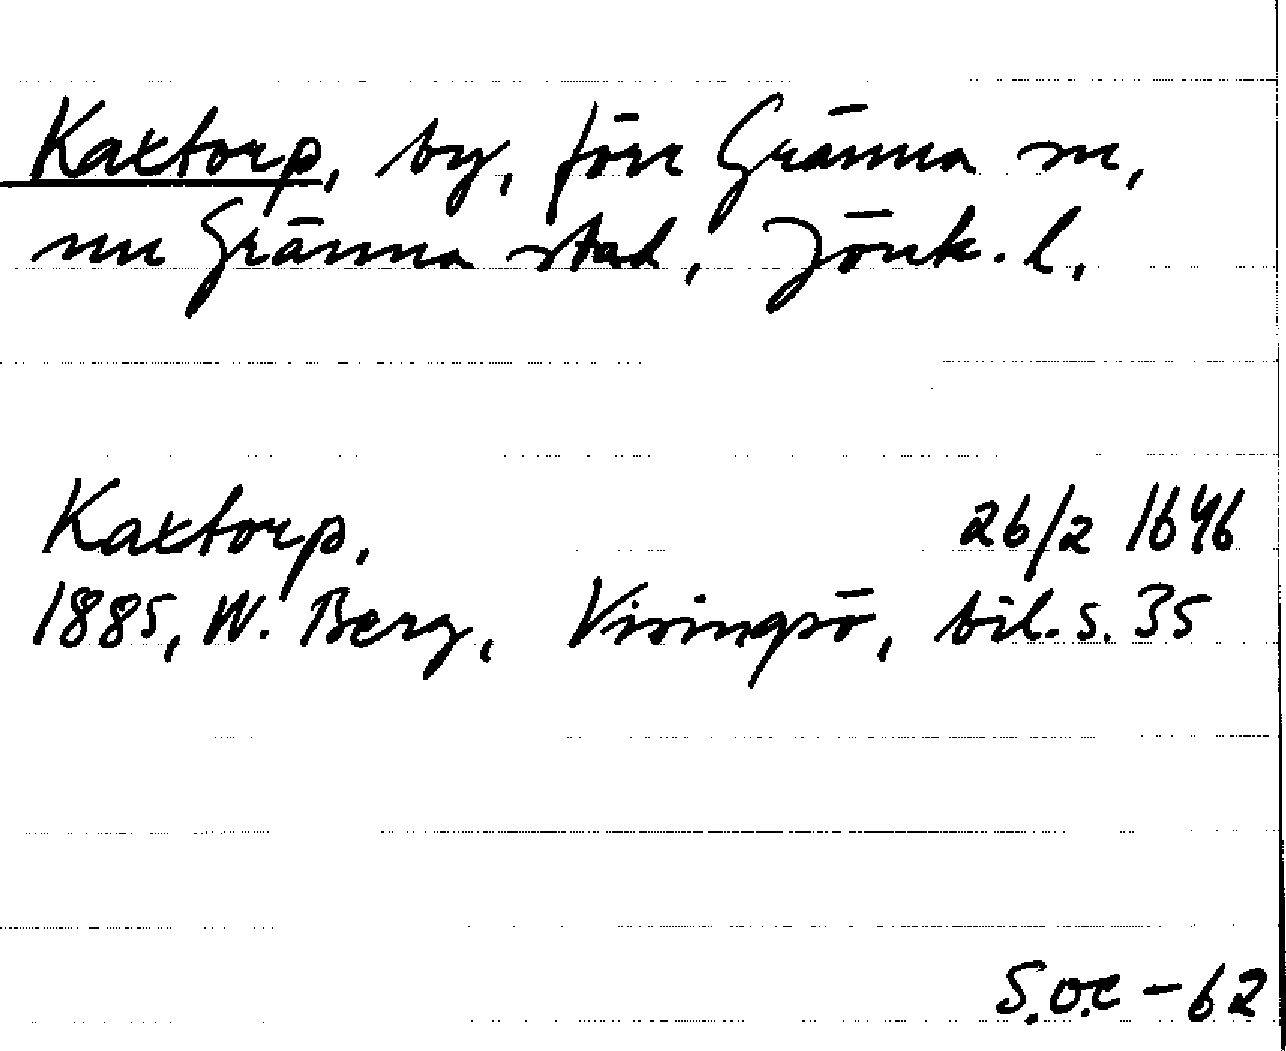 Kaxtorp, by, förr Gränna sn,
nu Gränna stad, Jönk. l.
Kaxtorp. 26/2 1646
1885, W. Berg, Visingsö, bil. s. 35
S.O.C - 62